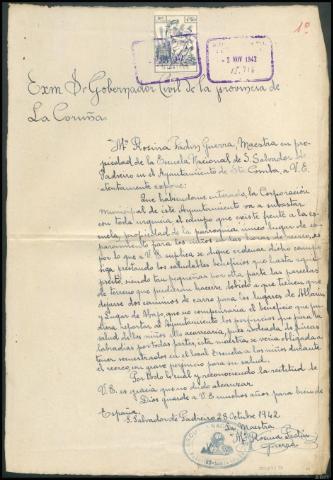 1º
- 2 NOV 1942
Exm Sr Gobernador Civil de la provincia de
La Coruña.
Mª Rosina Guerra, Maestra en pro-
piedad de la Escuela Nacional de S. Salvador de
Padreiro en el Ayuntamiento de Sta Comba, a V.E.
atentamente expone:
Que habiéndome enterado, la Corporación
Municipal de este Ayuntamiento va a subastar
con toda urgencia el campo que existe frente a la es-
cuela, propiedad de la parroquia unico lugar de es-
parcimiento para los niños en las horas de recreo, es
por lo que a V.E. suplica se digne ordenar dicho campo
siga prestando los saludables beneficios que hasta aquí
prestó, siendo tan pequeñas por otra parte las parcelas
de terreno que pudieran hacerse debido a que tienen que
dejarse dos caminos de carro para los lugares de
y Lugar de Abajo, que no compensaría el beneficio que pu-
diera reportar al Ayuntamiento los perjuicios que para la
salud de los niños les acarrearía, pues rodeada de fincas
labradas por todas partes, esta maestra se vería obligada a
tener secuestrados en el local Escuela a los niños durante
el recreo, con grave perjuicio para su salud.
Por todo lo cual y reconociendo la rectitud de
V.E. es gracia que no dudo alcanzar.
Dios guarde a V.E. muchos años para bien de
España.
S. Salvador de Padreiro 28 Octubre 1942
La Maestra
Mª Rosina
Guerra